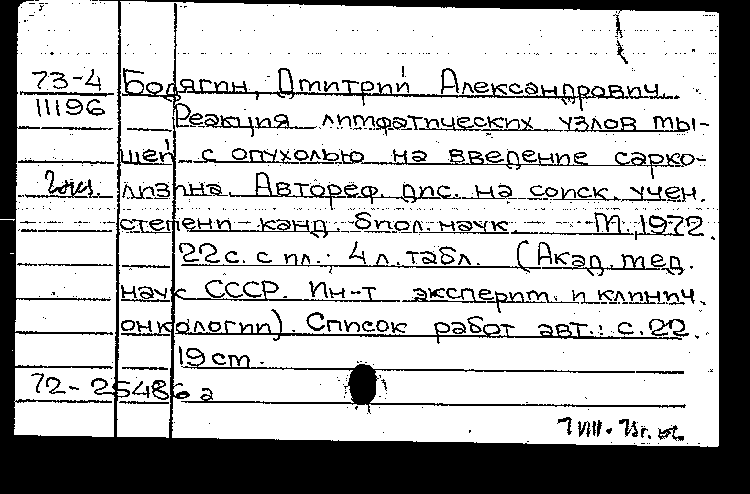 73-4 Бодягин, Дмитрий Александрович.
11196 Реакция лимфатических узлов мы-
шей с опухолью на введение сарко-
2 экз. лизина. Автореф. дис. на соиск. учен.
степени канд. биол. наук. М., 1972.
22 с. с ил.; 4 л. табл. (Акад. мед.
наук СССР. Ин-т эксперим. и клинич.
онкологии). Список работ авт.: с. 22.
19 см.
72-25486а
7 VIII. 73г.